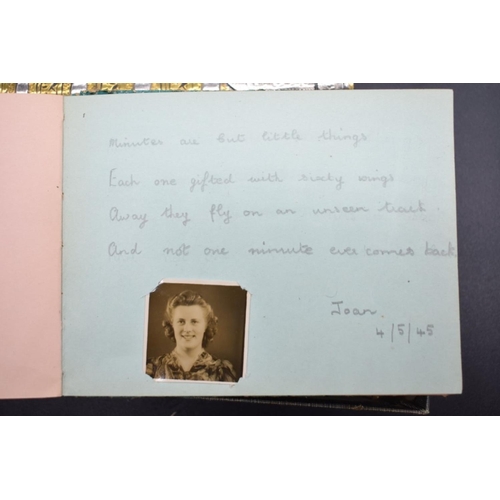 Minutes are but little things
Each one gifted with sixty wings
Away they fly on an unseen track
And not one minute ever comes back
Joan.
4/5/45